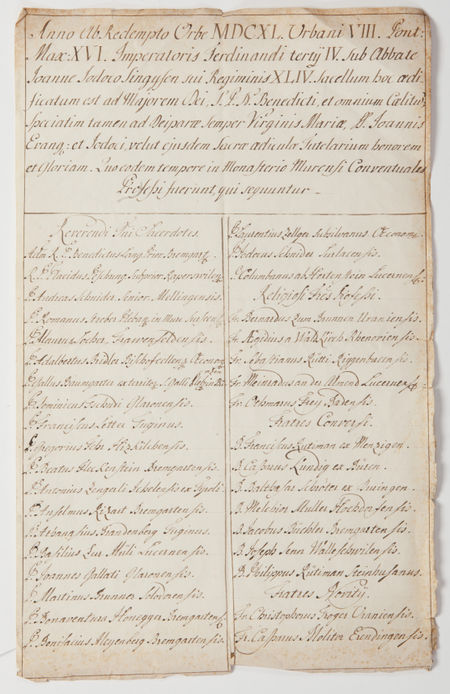 Anno Ab Redempto Orbe MDCXL. Urbani VIII. Pont:
Max: XVI. Imperatoris Ferdinandi tertij IV. Sub Abbate
Joanne Jodoco Singysen sui Regiminis XLIV. Sacellum hoc ædi
ficatum est ad Majorem Dei, S.P.N. Benedicti, et omnium Cælitu,
Speciatim tamen ad Deiparæ Semper Virginis Mariæ, SS. Joannis
Evang: et Jodoci, velut ejusdem Sacræ ædiculæ Tutelarium honorem
et Gloriam. Quo eodem tempore in Monasterio Murensi Conventuales
Professi fuerunt, qui sequuntur
Reverendi Sacerdotes.
Benedictus Lang Prior Bremgart.
R. P. Placidus Subprior Rapersvilen
P. Andrea Schnider Senior. Mellingensis.
P. Romanus Streber in Muri
P. Locher. Frawenfeldensis.
P. Adalbertus
P. Gallus Baumgarter
P. Dominicus Tschudi Glaronensis.
P. Franciscus Letter Tuginus.
P. Gregorius Hitzkilchensis.
P. Beatus Bremgartensis.
P. Antonius ex Tyroli.
P. Anselmus Bremgartensis.
P. Athanasius Brandenberg Tuginus.
P. Basilius Zur Müli Lucernensis.
P. Joannes Gallati Glaronensis.
P. Martinus Brunner
P. Bonaventura Honegger Bremgartens.
P. Bonifacius Weyenberg Bremgartensis.
P. Fintentius
P. Jodocus Schnider Surlacensis.
P. Columbanus Lucernens.
Religiosi Frēs Professi.
Fr. Bernardus Zum Brunnen Uraniensis.
Fr. Ægidius a Waldkirch Rhenoviensis.
Fr. Sebastianus Rütti
Fr. Meinradus an der Almend Lucernens.
Fr. Othmarus Frey Badensis.
Fratres Conversi.
B. Franciscus Rutiman ex Menzigen.
B. Caspar Kündig ex Büren.
B. Balthasar ex
B. Melchior Muller
B. Jacobus Buechler Bremgartensis.
B. Joseph Senn
B. Philippus Rütiman Steinhusanus.
Fratres
Fr. Christophorus Troger Uraniensis.
Fr. Casparus Molitor Eiendingensis.